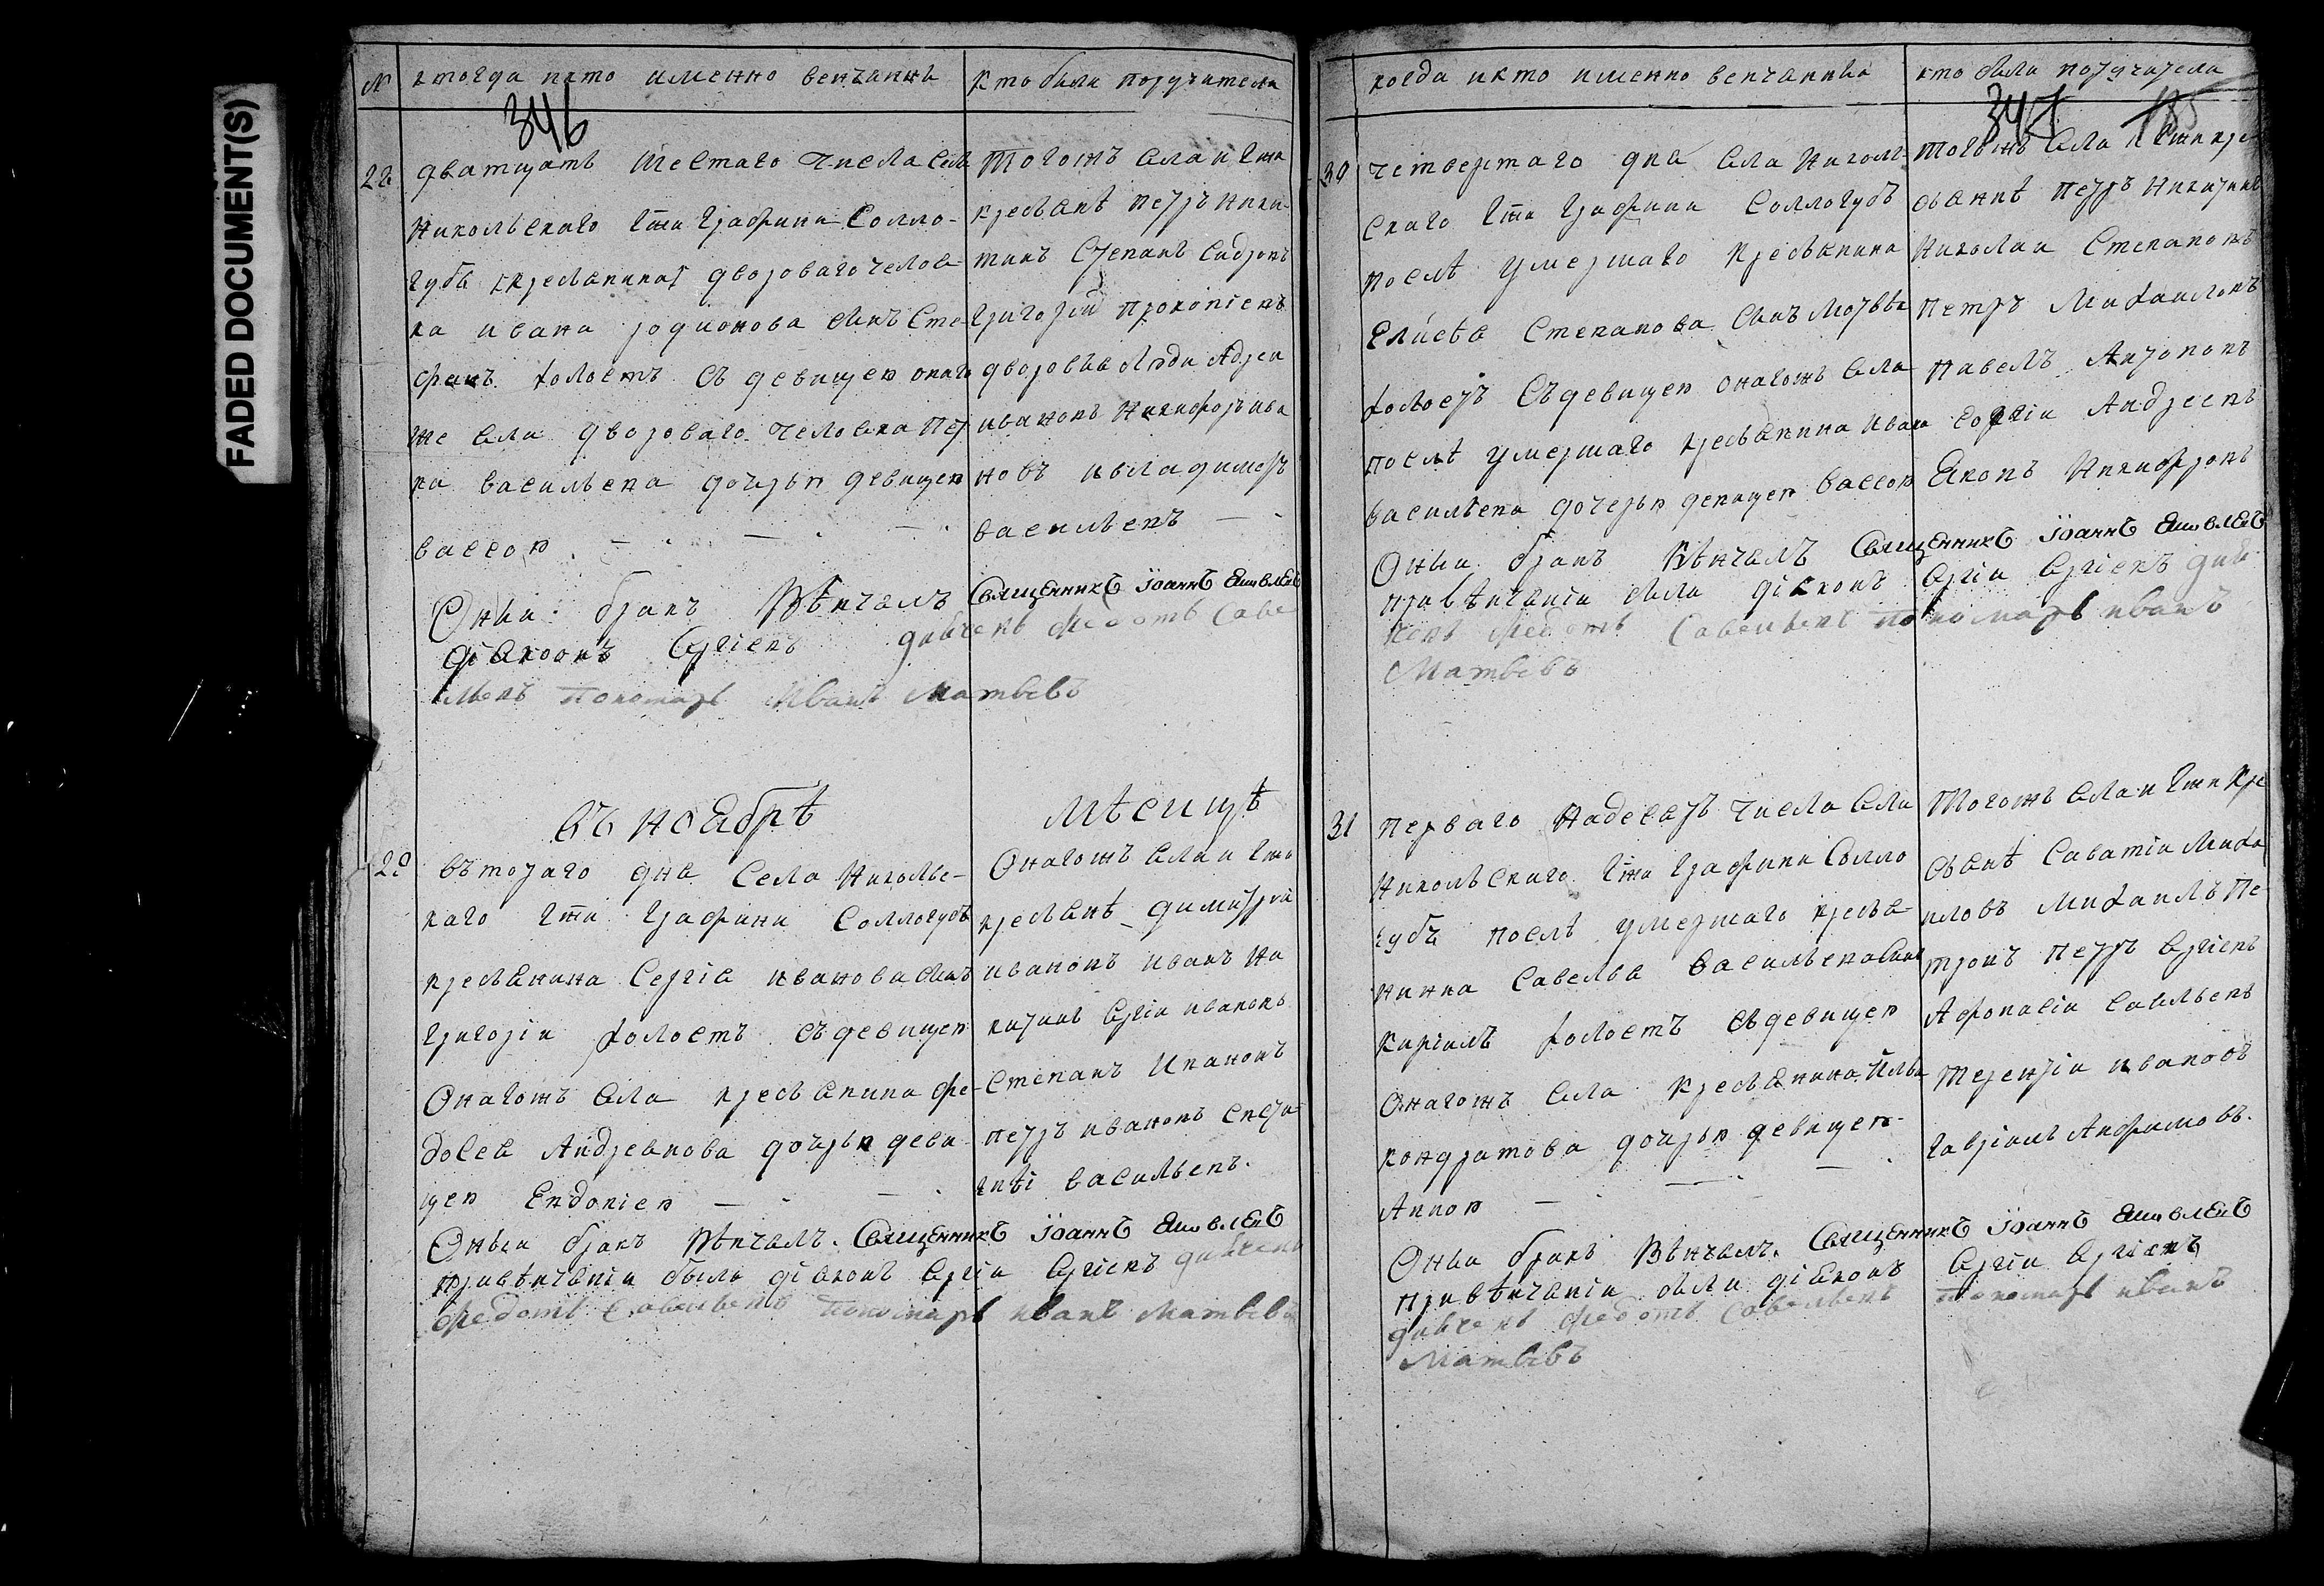 FADED DOCUMENT(S)
№ когда икто именно венчанны
кто были поручители
346
28 дватцать шестаго числа села
Никольскаго Гжи Графини Солло-
губъ крестьянина дворового челове-
ка ивана родионова сынъ Сте-
фанъ холостъ съ девицею онаго
же села дворового человека Пет
ра васильева дочерью девицею
вассою
тогожъ села и Гжи
крестьянѣ петръ ники-
тинъ Степанъ Сидровъ
Григорий прокопіевъ
дворовыя люди Адреи
ивановъ Никифоръ ива
новъ ивладимеръ
васильевъ
Оныи бракъ вѣнчалъ Священникъ Іоаннъ Яковлевъ
діаконъ Сергіевъ дьячекъ Федотъ Саве
льевъ пономарь Иванъ Матвѣвъ
въ ноябрѣ
мѣсяцѣ
29 втораго дня Села Никольс-
каго Гжи Графини Соллогубъ
крестьянина Сергія иванова сынъ
Григорій холостъ съ девицею
Онагожъ села крестьянина Фе-
досея Андреянова дочерью деви-
цею Евдокіею
Онагожъ села и Гжи
крестьянѣ димитрій
ивановъ иванъ Ни
китинъ Сергіи ивановъ
Степанъ Ивановъ
петръ ивановъ
васильевъ.
Оныи бракъ вѣнчалъ. Священникъ Іоаннъ Яковлевъ
привѣнчаніи были діаконъ Сергіи Сергіевъ дьячекъ
Федотъ Савельевъ пономарь иванъ Матвѣвъ
когда икто именно венчанны
кто были поручители
347 185
30 четвертаго дня села Николь-
скаго Гжи Графини Соллогубъ
послѣ умершаго крестьянина
Елисѣя Степанова сынъ
холостъ Съдевицею онагожъ села
послѣ умершаго крестьянина ивана
васильева дочерью девицею вассою
тогожъ села и Гжи крес
тьянѣ петръ Никитинъ
Николаи Степановъ
петръ Михаиловъ
павелъ
Андреевъ
Яковъ Никифровъ
Оныи бракъ вѣнчалъ Священникъ Іоаннъ Яковлевъ
привѣнчаніи были діаконъ Сергіи Сергіевъ дьяч
чекъ Федотъ Савельевъ пономарь иванъ
Матвѣвъ
31 перваго Надесять числа села
Никольскаго Гжи Графини Солло
губъ послѣ умершаго крестья-
нина Савелья васильева сынъ
Киріилъ холостъ съдевицею
Онагожъ села крестьянина Ильи
кондратова дочерью девицею
Анною
Тогожъ села и Гжи Кре
стьянѣ Саватіи Миха
иловъ Михаилъ Пе
тровъ петръ Сергіевъ
Афонасіи савельевъ
терентіи ивановъ
Гавріилъ Анфимовъ.
Оныи бракъ вѣнчалъ. Священникъ Іоаннъ Яковлевъ
привѣнчаніи были діаконъ Сергіи Сергіевъ
дьячекъ Федотъ Савельевъ пономарь иванъ
Матвѣвъ